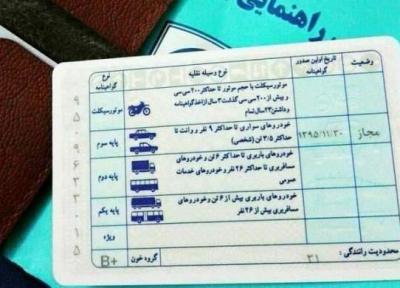 راهنمایی
وضعیت
تاریخ اولین صدور
گواهینامه
نوع وسیله نقلیه
نوع
گواهینامه
موتورسیکلت با حجم موتور تا حداکثر ۲۰۰ سی سی
و بیش از ۲۰۰ سی سی گذشت ۳ سال از اخذ گواهینامه
و داشتن ۲۳ سال تمام
موتورسیکلت
مجاز
۱۳۹۵/۱۱/۳۰
خودروهای سواری تا حداکثر ۹ نفر و وانت تا
حداکثر ۳/۵ تن (شخصی)
پایه سوم
خودروهای باربری تا حداکثر ۶ تن و خودروهای
مسافربری تا حداکثر ۲۶ نفر و خودروهای خدمات
عمومی
پایه دوم
خودروهای باربری بیش از ۶ تن و خودروهای
مسافربری بیش از ۲۶ نفر
پایه یکم
ویژه
محدودیت رانندگی :
۳۱
گروه خون
B+